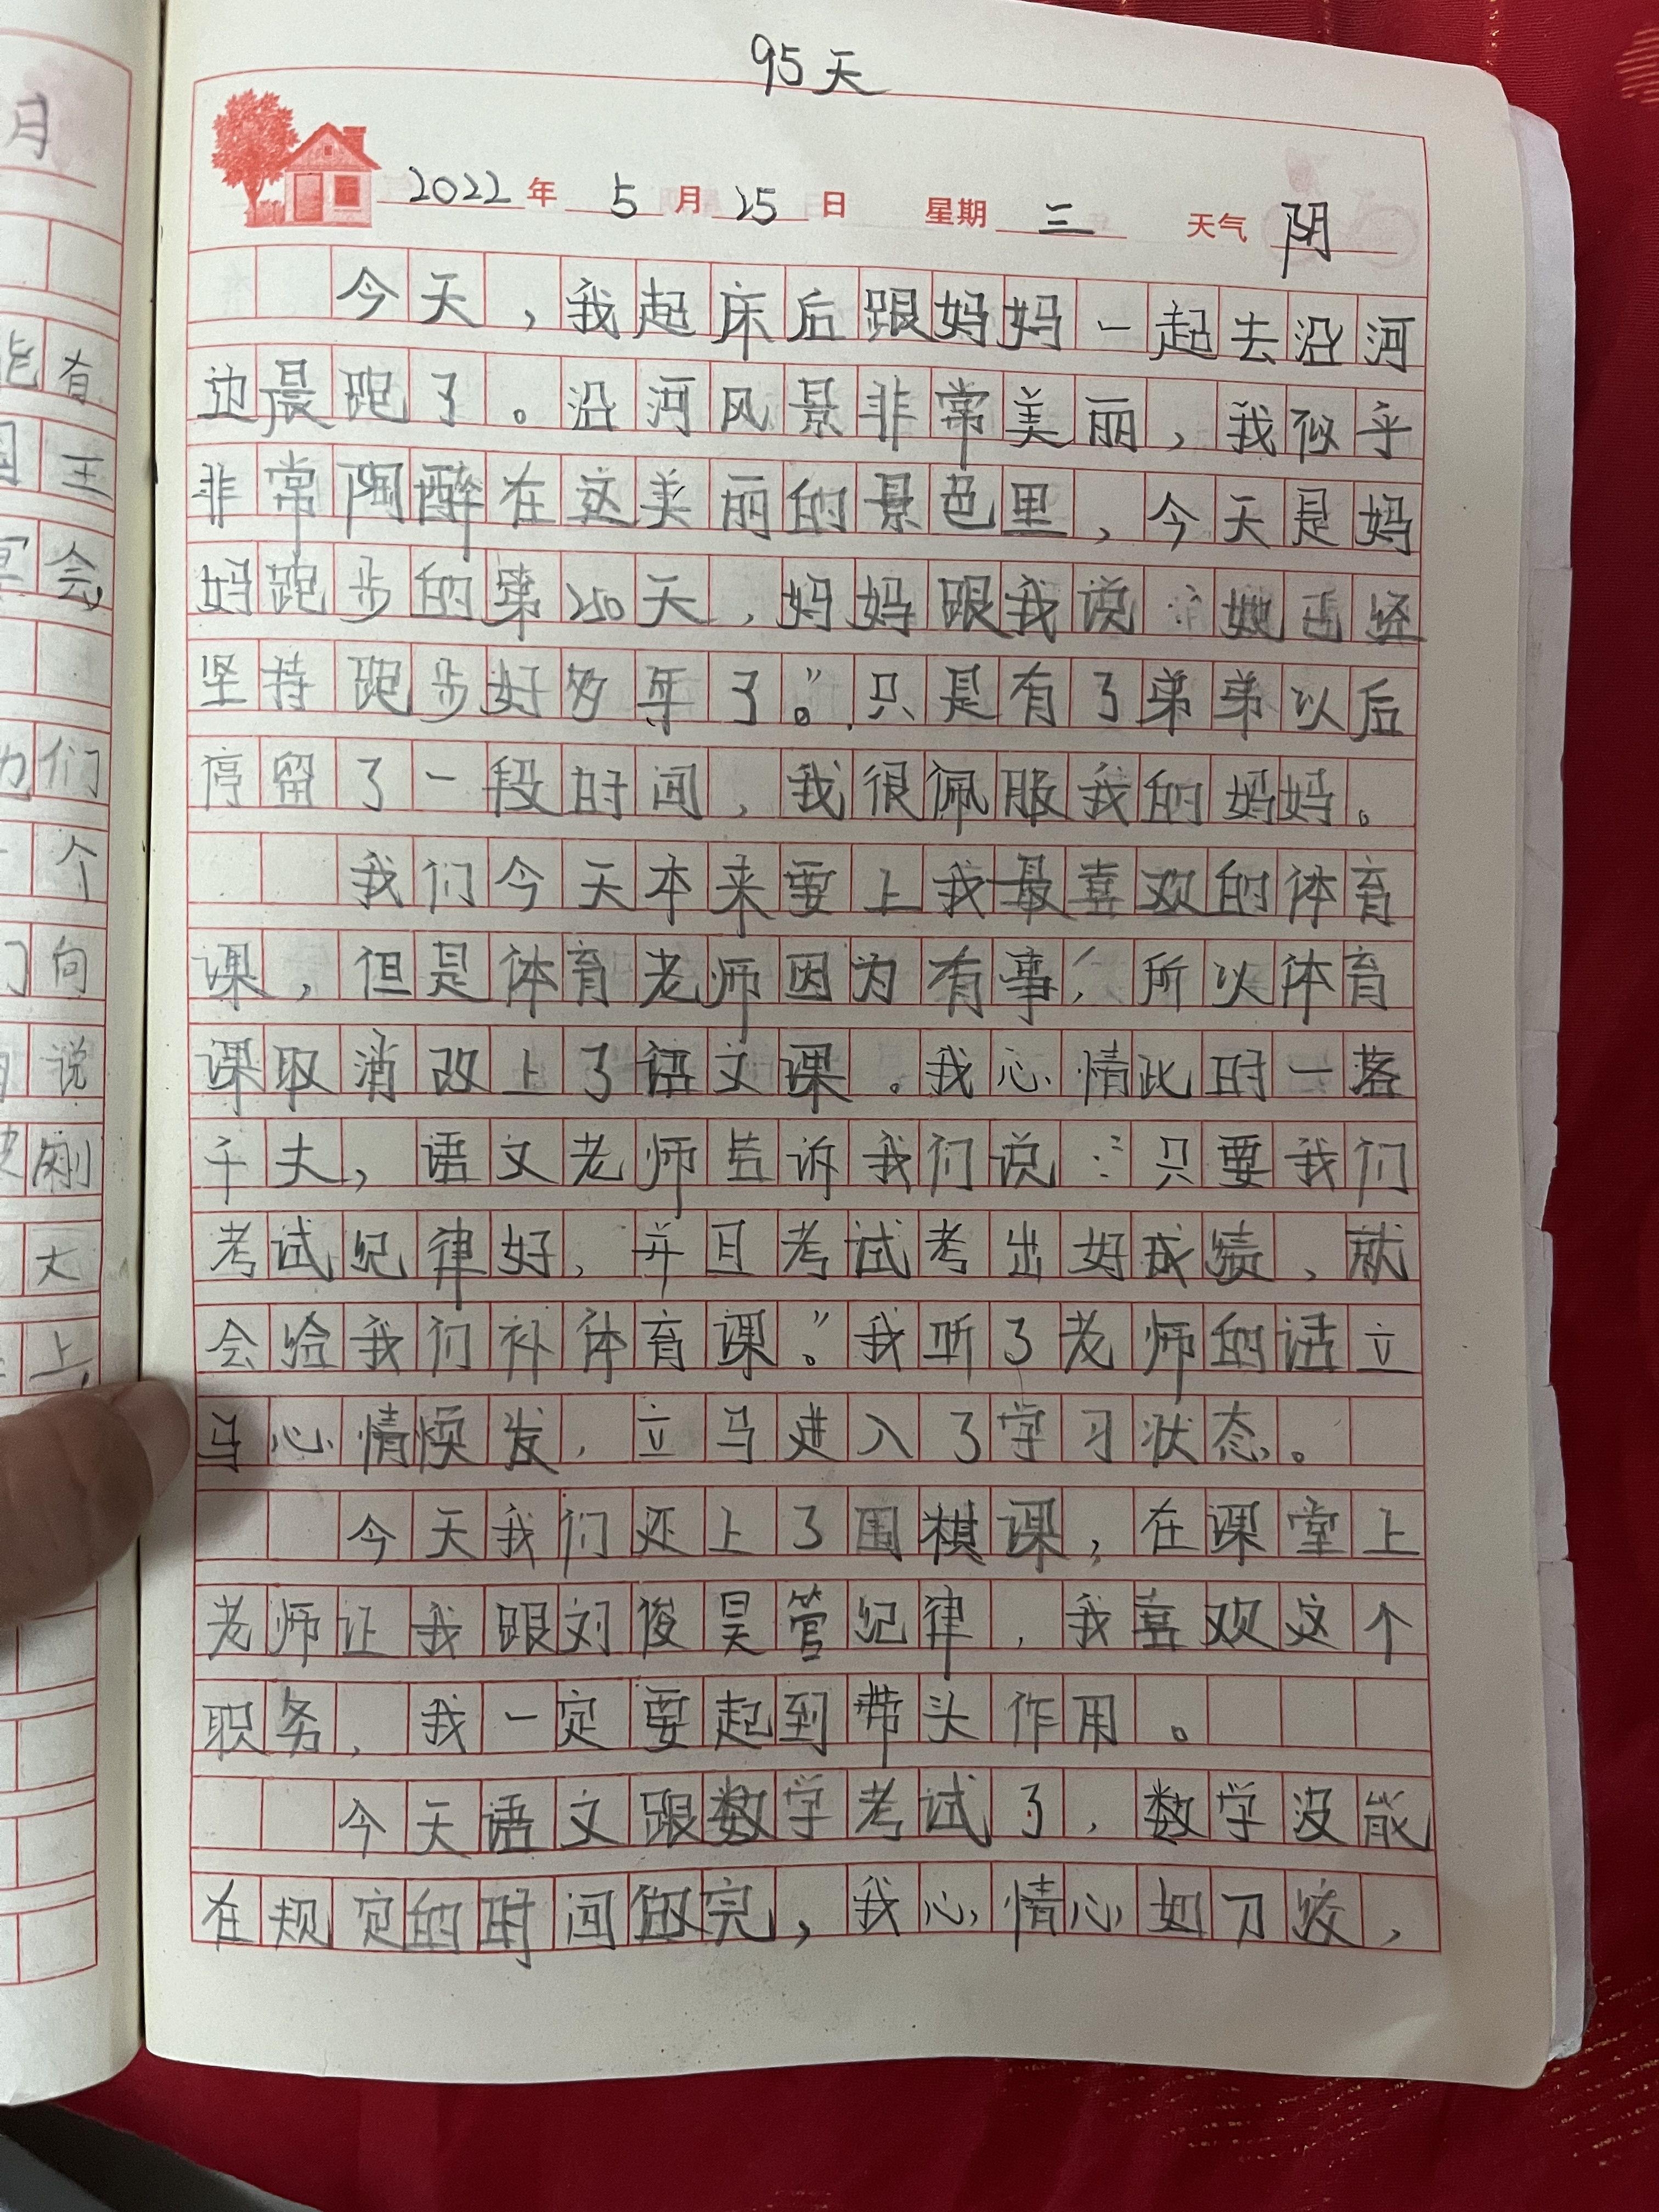 95天
2022年 5月25日 星期三 天气 阴
今天，我起床后跟妈妈一起去沿河
边晨跑了。沿河风景非常美丽，我似乎
非常陶醉在这美丽的景色里，今天是妈
妈跑步的第250天，妈妈跟我说：“她已经
坚持跑步好多年了。”只是有了弟弟以后
停留了一段时间，我很佩服我的妈妈。
我们今天本来要上我最喜欢的体育
课，但是体育老师因为有事，所以体育
课取消改上了语文课。我心情此时一落
千丈，语文老师告诉我们说：“只要我们
考试纪律好，并且考试考出好成绩，就
会给我们补体育课。”我听了老师的话立
马心情焕发，立马进入了学习状态。
今天我们还上了围棋课，在课堂上
老师让我跟刘俊昊管纪律，我喜欢这个
职务，我一定要起到带头作用。
今天语文跟数学考试了，数学没能
在规定的时间做完，我心情心如刀绞，
月
有
王
会
们
个
向
说
刚
大
上，